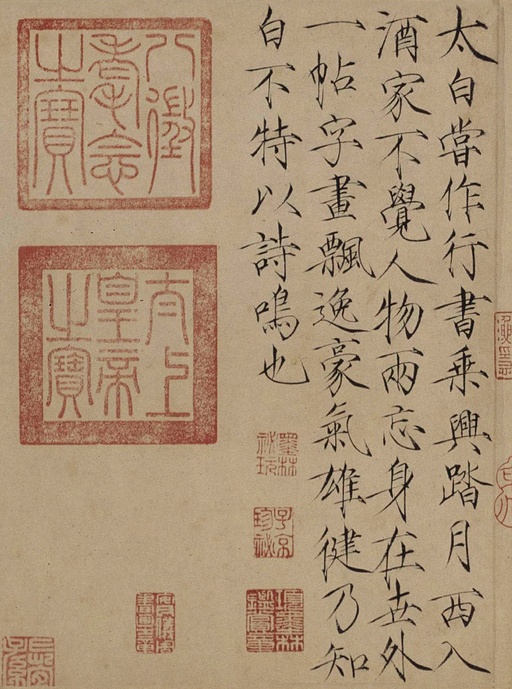 太白嘗作行書乘興踏月西入
酒家不覺人物兩忘身在世外
一帖字畫飄逸豪氣雄健乃知
白不特以詩鳴也
八徵耄念之寶
太上皇帝之寶
墨林秘玩